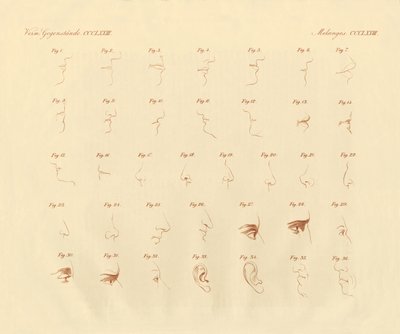 Verm. Gegenstände. CCCLXXIII. Mélanges. CCCLXXIII.
Fig. 1. Fig. 2. Fig. 3. Fig. 4. Fig. 5. Fig. 6. Fig. 7.
Fig. 8. Fig. 9. Fig. 10. Fig. 11. Fig. 12. Fig. 13. Fig. 14.
Fig. 15. Fig. 16. Fig. 17. Fig. 18. Fig. 19. Fig. 20. Fig. 21. Fig. 22.
Fig. 23. Fig. 24. Fig. 25. Fig. 26. Fig. 27. Fig. 28. Fig. 29.
Fig. 30. Fig. 31. Fig. 32. Fig. 33. Fig. 34. Fig. 35. Fig. 36.